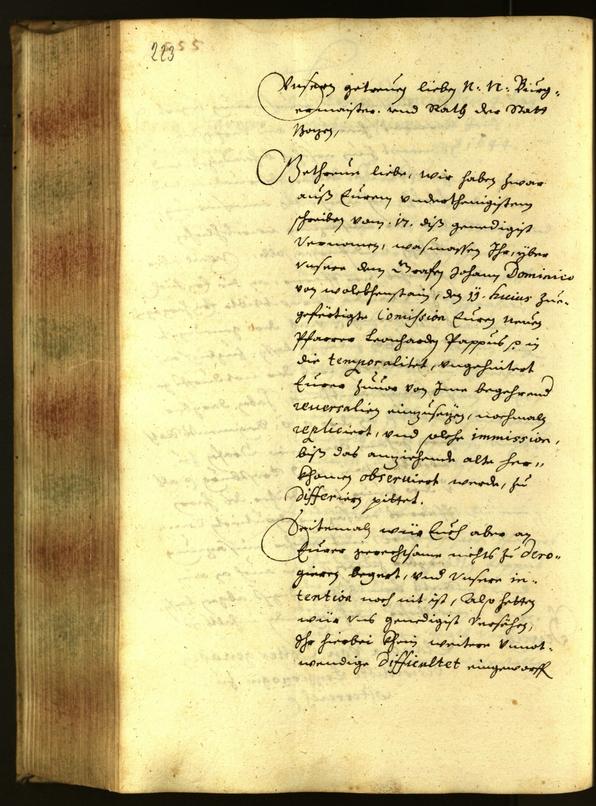 223
Unsern getreuen lieben N. N. Burg-
ermaister und Rath der Statt
Bozen,
Gethreue liebe, wir haben zwar
auß Eurem underthenigistem
schreiben vom 17. diß genedigist
vernomen, wasmassen Ihr, über
unsere dem Grafen Johann Dominico
von Wolckhenstain, den 19. huius zue-
gefertigte Comission Euren neuen
Pfarrer Leonharden Pappus, p in
die temporalitet, ungehindert
Eurer zuuor von Ime begehrend
reuersalien einzusezen, nochmaln
repliciert, und solche immission,
biß das anziehende alte her-
khomen obseruiert werde, zu
differiern pittet.
Seitemaln wür Euch aber an
Eurer gerechtsame nichts zu dero-
gieren begert, und unsere in-
tention noch nit ist, Also hetten
wür uns genedigist versehen,
Ihr hierbei khein weitere unnot-
wendige difficultet eingeworff